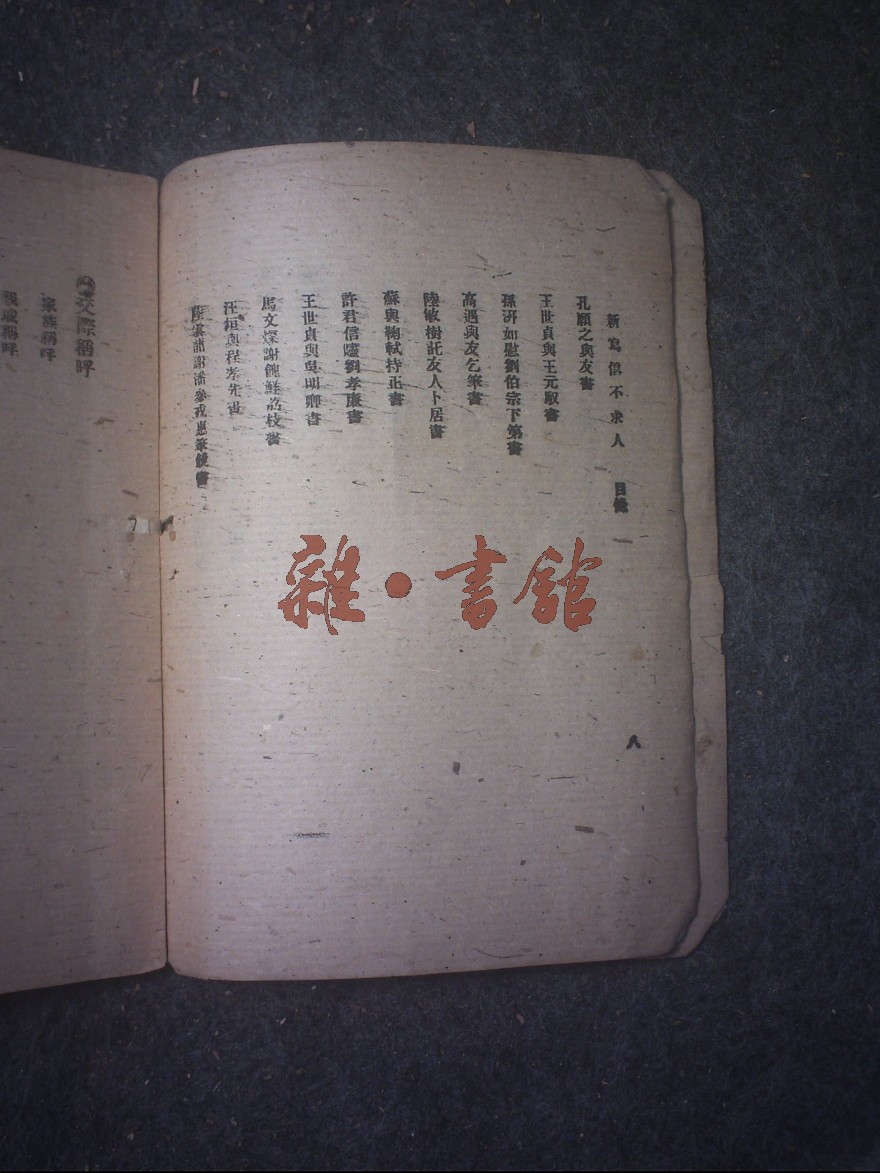 新寫信不求人 目錄 八
孔顒之與友書
王世貞與王元馭書
孫洴如慰劉伯宗下第書
高邁與友乞筆書
陸敏樹託友人卜居書
蘇與鞠軾持正書
許君信噓劉孝廉書
王世貞與吳明卿書
馬文燦謝餽鮮荔枝書
汪垣與程孝先書
陸雲龍謝潘參戎惠筆鏡書
交際稱呼
家族稱呼
親戚稱呼
雜·書館